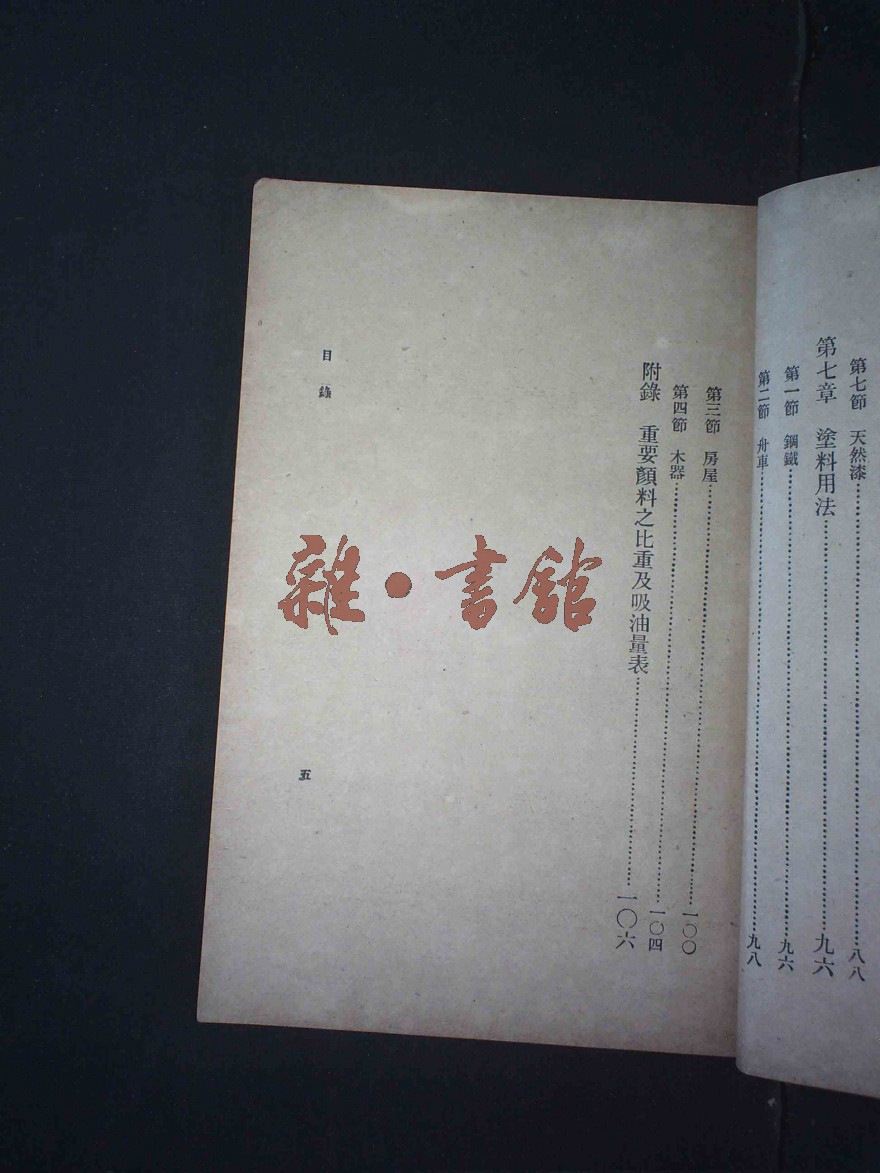 第七節 天然漆……八八
第七章 塗料用法……九六
第一節 鋼鐵……九六
第二節 舟車……九八
第三節 房屋……一〇〇
第四節 木器……一〇四
附錄 重要顏料之比重及吸油量表……一〇六
目錄
五
雜·書館